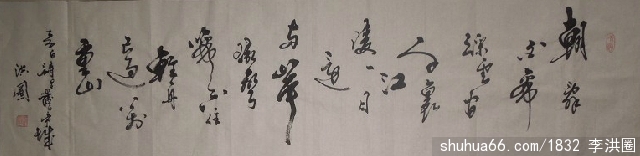 朝辞
白帝
彩云间
千里
江
陵一日
还
两岸
猿声
啼不住
轻舟
已过万
重山
李白诗早发白帝城
洪圈
shuhua66.com/1832 李洪圈